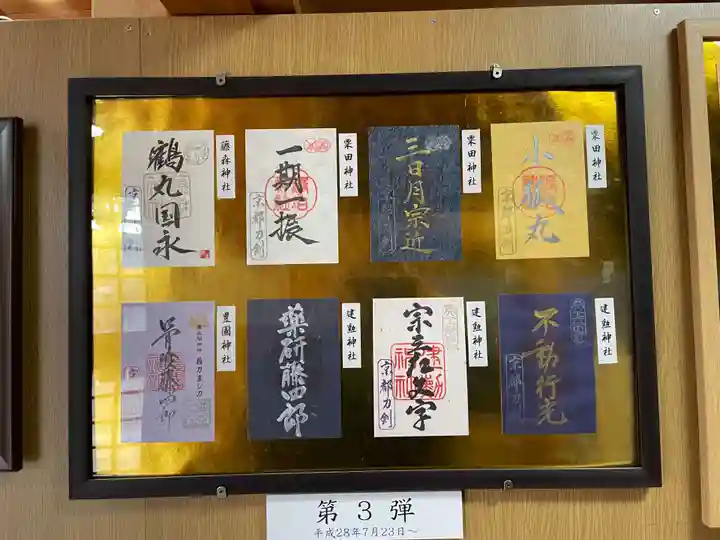 鶴丸国永
藤森神社
一期一振
京都刀剣
粟田神社
三日月宗近
京都刀剣
粟田神社
小狐丸
京都刀剣
粟田神社
骨喰藤四郎
豊國神社
薬研藤四郎
建勲神社
宗三左文字
京都刀剣
建勲神社
不動行光
京都刀剣
建勲神社
第3弾
平成28年7月23日～